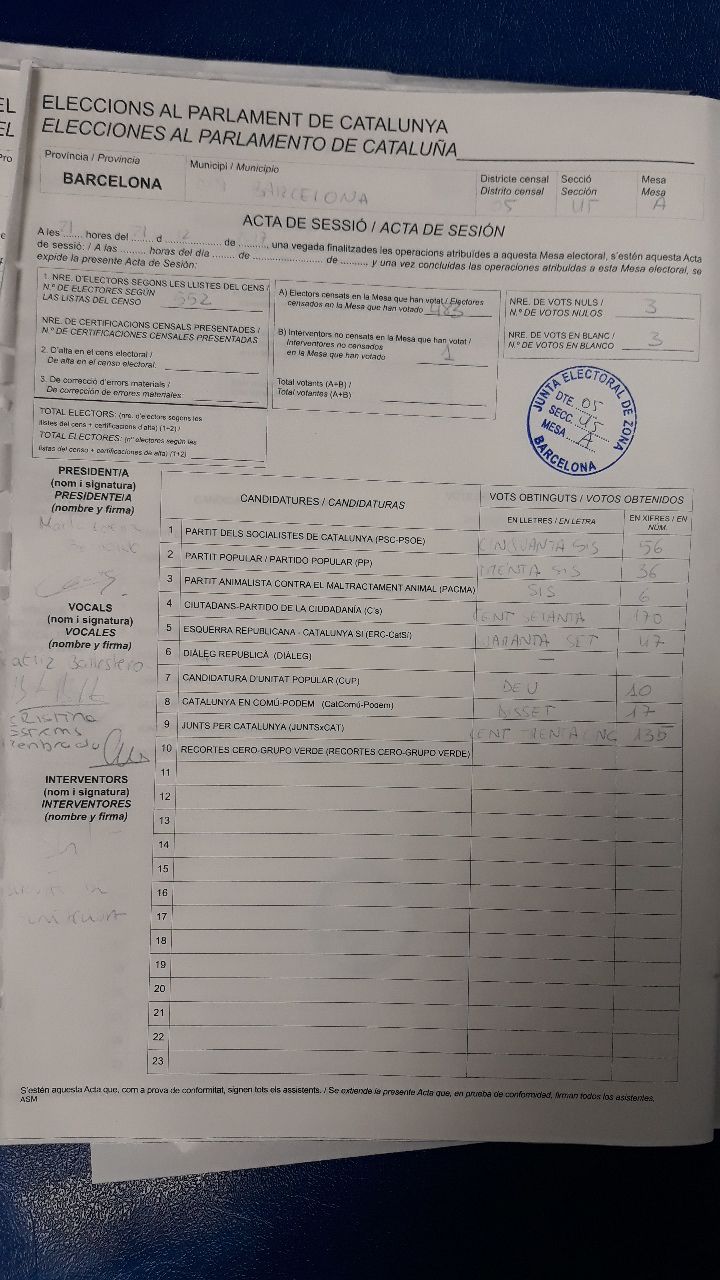 ELECCIONS AL PARLAMENT DE CATALUNYA
ELECCIONES AL PARLAMENTO DE CATALUÑA
Província / Provincia
BARCELONA
Municipi / Municipio
BARCELONA
Districte censal
Distrito censal
05
Secció
Sección
Mesa
Mesa
A
ACTA DE SESSIÓ / ACTA DE SESIÓN
A les ........ hores del ........ d ................ de ........, una vegada finalitzades les operacions atribuïdes a aquesta Mesa electoral, s'estén aquesta Acta
de sessió: / A las ........ horas del día ........ de ........................ de ........ y una vez concluidas las operaciones atribuidas a esta Mesa electoral, se
expide la presente Acta de Sesión:
1. NRE. D'ELECTORS SEGONS LES LLISTES DEL CENS /
N.º DE ELECTORES SEGÚN
LAS LISTAS DEL CENSO 552
NRE. DE CERTIFICACIONS CENSALS PRESENTADES /
N.º DE CERTIFICACIONES CENSALES PRESENTADAS
2. D'alta en el cens electoral /
De alta en el censo electoral:
3. De correcció d'errors materials /
De corrección de errores materiales
TOTAL ELECTORS: (nre. d'electors segons les
llistes del cens + certificacions d'alta) (1+2) /
TOTAL ELECTORES: (nº electores según las
listas del censo + certificaciones de alta) (1+2)
A) Electors censats en la Mesa que han votat / Electores
censados en la Mesa que han votado 483
B) Interventors no censats en la Mesa que han votat /
Interventores no censados
en la Mesa que han votado 1
Total votants (A+B) /
Total votantes (A+B)
NRE. DE VOTS NULS /
N.º DE VOTOS NULOS 3
NRE. DE VOTS EN BLANC /
N.º DE VOTOS EN BLANCO 3
JUNTA ELECTORAL DE ZONA
DTE. 05
SECC.
MESA A
BARCELONA
PRESIDENT/A
(nom i signatura)
PRESIDENTE/A
(nombre y firma)
VOCALS
(nom i signatura)
VOCALES
(nombre y firma)
Ballestero
CRISTINA
INTERVENTORS
(nom i signatura)
INTERVENTORES
(nombre y firma)
CANDIDATURES / CANDIDATURAS
VOTS OBTINGUTS / VOTOS OBTENIDOS
EN LLETRES / EN LETRA
EN XIFRES / EN NÚM.
1 PARTIT DELS SOCIALISTES DE CATALUNYA (PSC-PSOE) CINQUANTA SIS 56
2 PARTIT POPULAR / PARTIDO POPULAR (PP) TRENTA SIS 36
3 PARTIT ANIMALISTA CONTRA EL MALTRACTAMENT ANIMAL (PACMA) SIS 6
4 CIUTADANS-PARTIDO DE LA CIUDADANÍA (C's) CENT SETANTA 170
5 ESQUERRA REPUBLICANA - CATALUNYA SI (ERC-CatSí) QUARANTA SET 47
6 DIÀLEG REPUBLICÀ (DIÀLEG) —
7 CANDIDATURA D'UNITAT POPULAR (CUP) DEU 10
8 CATALUNYA EN COMÚ-PODEM (CatComú-Podem) DISSET 17
9 JUNTS PER CATALUNYA (JUNTSxCAT) CENT TRENTA CINC 135
10 RECORTES CERO-GRUPO VERDE (RECORTES CERO-GRUPO VERDE)
11
12
13
14
15
16
17
18
19
20
21
22
23
S'estén aquesta Acta que, com a prova de conformitat, signen tots els assistents. / Se extiende la presente Acta que, en prueba de conformidad, firman todos los asistentes.
ASM